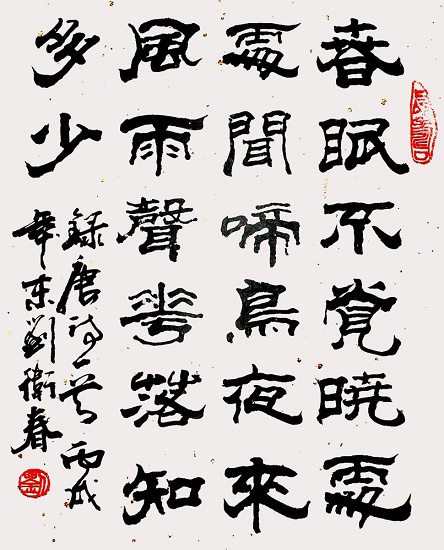 春眠不覺曉處
處聞啼鳥夜來
風雨聲花落知
多少
錄唐诗一首丙戌
年東劉衛春
劉